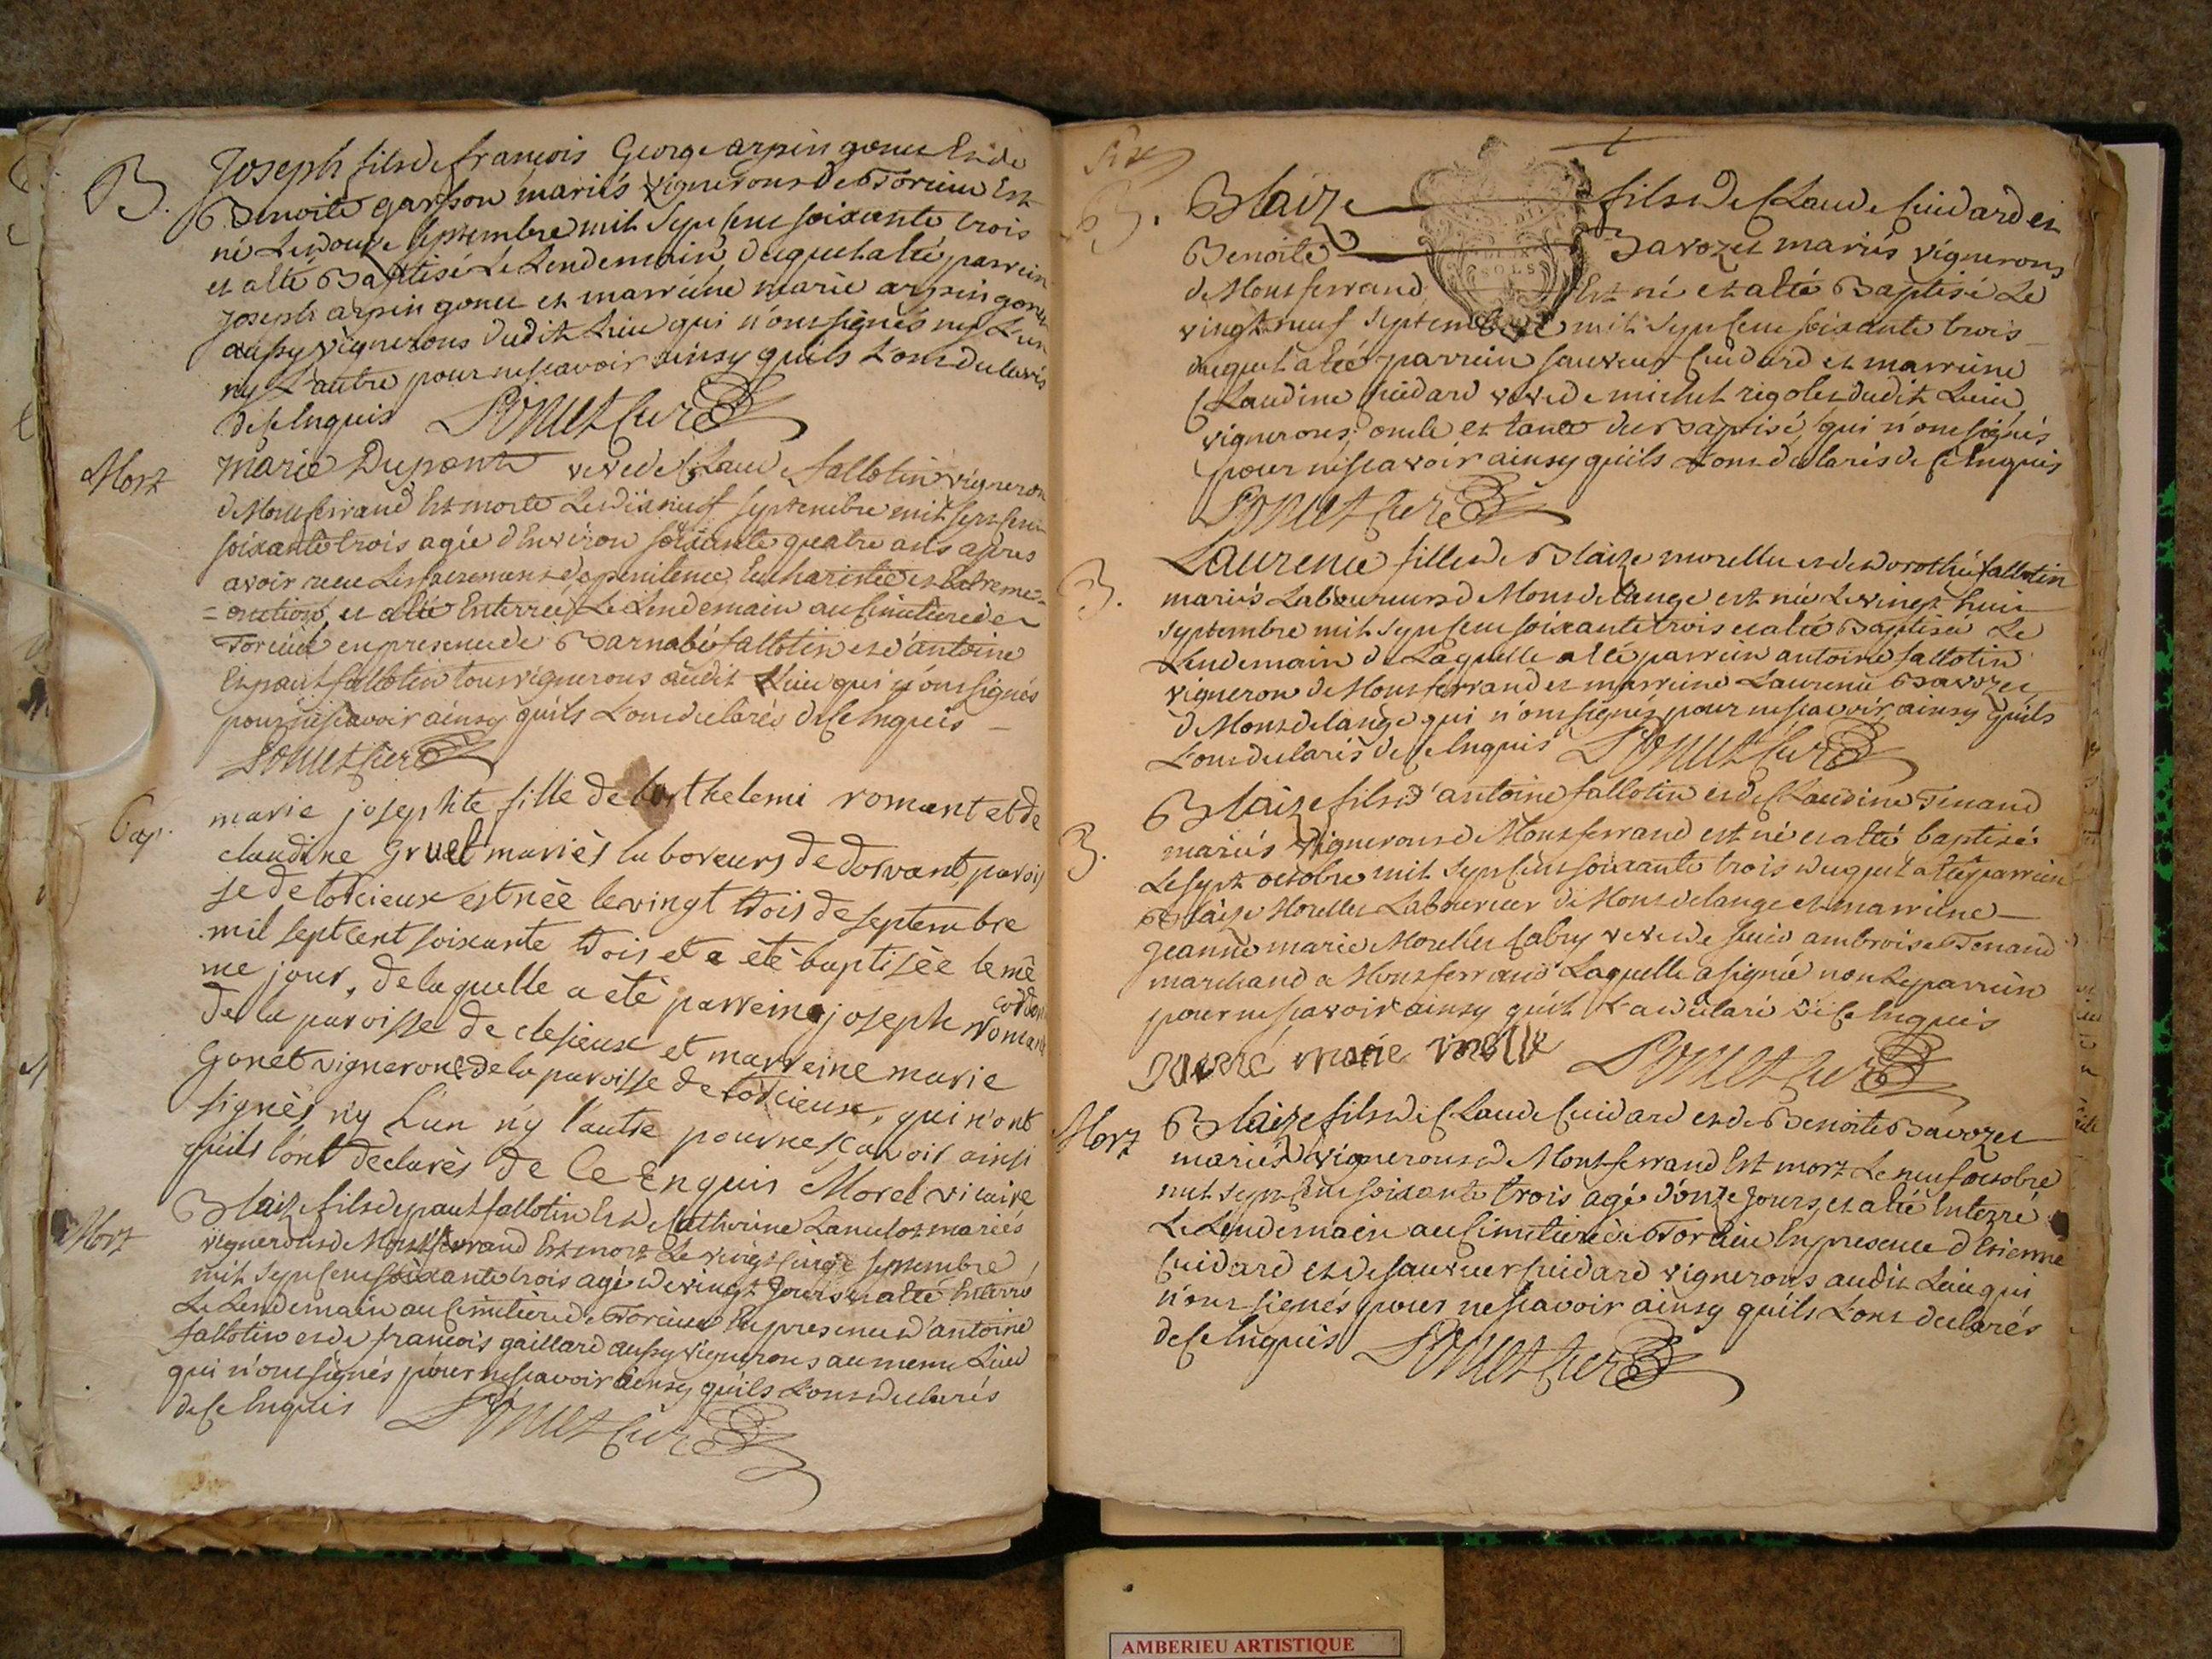 B. Joseph fils de francois George arpin gonet Et de
Benoite garsson mariés vignerons de Torcieu Est
né Le douze septembre mil sept cent soixante trois
et a Eté Baptisé Le Lendemain duquel a été parrein
joseph arpin gonet et marreine marie arpin gonet
aussy vignerons dudit Lieu qui n'ont signés ny L'un
ny L'autre pour ne scavoir ainsy quils L'ont declarés
de Ce Enquis Curé
Mort Marie Dupont veve de Claude fallotin vigneron
de Montferrand Est morte Le dix neuf septembre mil sept cent
soixante trois agée d'Environ soixante quatre ans apres
avoir receu Les sacremens de penitence, Eucharistie et Extreme
= onction, et a été Enterrée Le Lendemain au Cimitiere de
Torcieu en presence de Barnabé fallotin et d'antoine
Et paul fallotin tous vignerons audit Lieu qui n'ont signés
pour ne scavoir ainsy quils L'ont declarés de Ce Enquis
Curé
Bap. marie josephte fille de barthelemi romant et de
claudine gruel mariès laboreurs de dorvant, parois
se de torcieux est nèe le vingt trois de septembre
mil sept cent soixante trois et a étè baptisèe le mê
me jour, de laquelle a étè parrein joseph romand
cordon
de la paroisse de clesieux et marreine marie
Gonet vigneronne de la paroisse de torcieux, qui n'ont
signès n'y l'un n'y l'autre pour ne scavoir ainsi
qu'ils l'ont dèclarès de Ce Enquis Morel vicaire
Mort Blaize fils de paul fallotin Et de Catherine Lancelot mariés
vignerons de Montferrand Est mort Le vingt cinq septembre
mil sept cent soixante trois agé de vingt jours et a été Enterré
Le Lendemain au Cimitiere de Torcieu En presence d'antoine
fallotin et de francois gaillard aussy vignerons au meme Lieu
qui n'ont signés pour ne scavoir ainsy quils L'ont declarés
de Ce Enquis Curé
B. Blaize fils de Claude Cuidard et
Benoite Bavozet mariés vignerons
de Montferrand Est né et a été Baptisé Le
vingt neuf septembre mil sept cent soixante trois
duquel a été parrein sauveur Cuidard et marreine
Claudine Cuidard veve de michel rigolet dudit Lieu
vignerons, oncle et tante du Baptisé, qui n'ont signés
pour ne scavoir ainsy quils L'ont declarés de Ce Enquis
Curé
B. Laurence fille de Blaize morellet et de dorothée fallotin
mariés Laboureurs de Mont de lange est née Le vingt huit
septembre mil sept cent soixante trois et a été Baptisée Le
Lendemain de Laquelle a été parrein antoine fallotin
vigneron de Montferrand et marreine Laurence Bavozet
de Mont de lange qui n'ont signes pour ne scavoir ainsy quils
L'ont declarés de Ce Enquis Curé
B. Blaize fils d'antoine fallotin et de Claudine Tenand
mariés vignerons de Montferrand est né et a été baptisé
Le sept octobre mil sept cent soixante trois duquel a été parrein
Blaize Morellet Laboureur de Mont de lange et marreine
Jeanne marie Morellet Cabry veve de sieur ambroise Tenand
marchand a Montferrand Laquelle a signée non Le parrein
pour ne scavoir ainsy qu'il L'a declaré de Ce Enquis
marie Curé
Mort Blaize fils de Claude Cuidard et de Benoite Bavozet
mariés vignerons de Montferrand Est mort Le neuf octobre
mil sept cent soixante trois agé d'onze jours, et a été Enterré
Le Lendemain au Cimitiere de Torcieu En presence d'Etienne
Cuidard et de sauveur Cuidard vignerons audit Lieu qui
n'ont signés pour ne scavoir ainsy quils L'ont declarés
de Ce Enquis Curé
AMBERIEU ARTISTIQUE